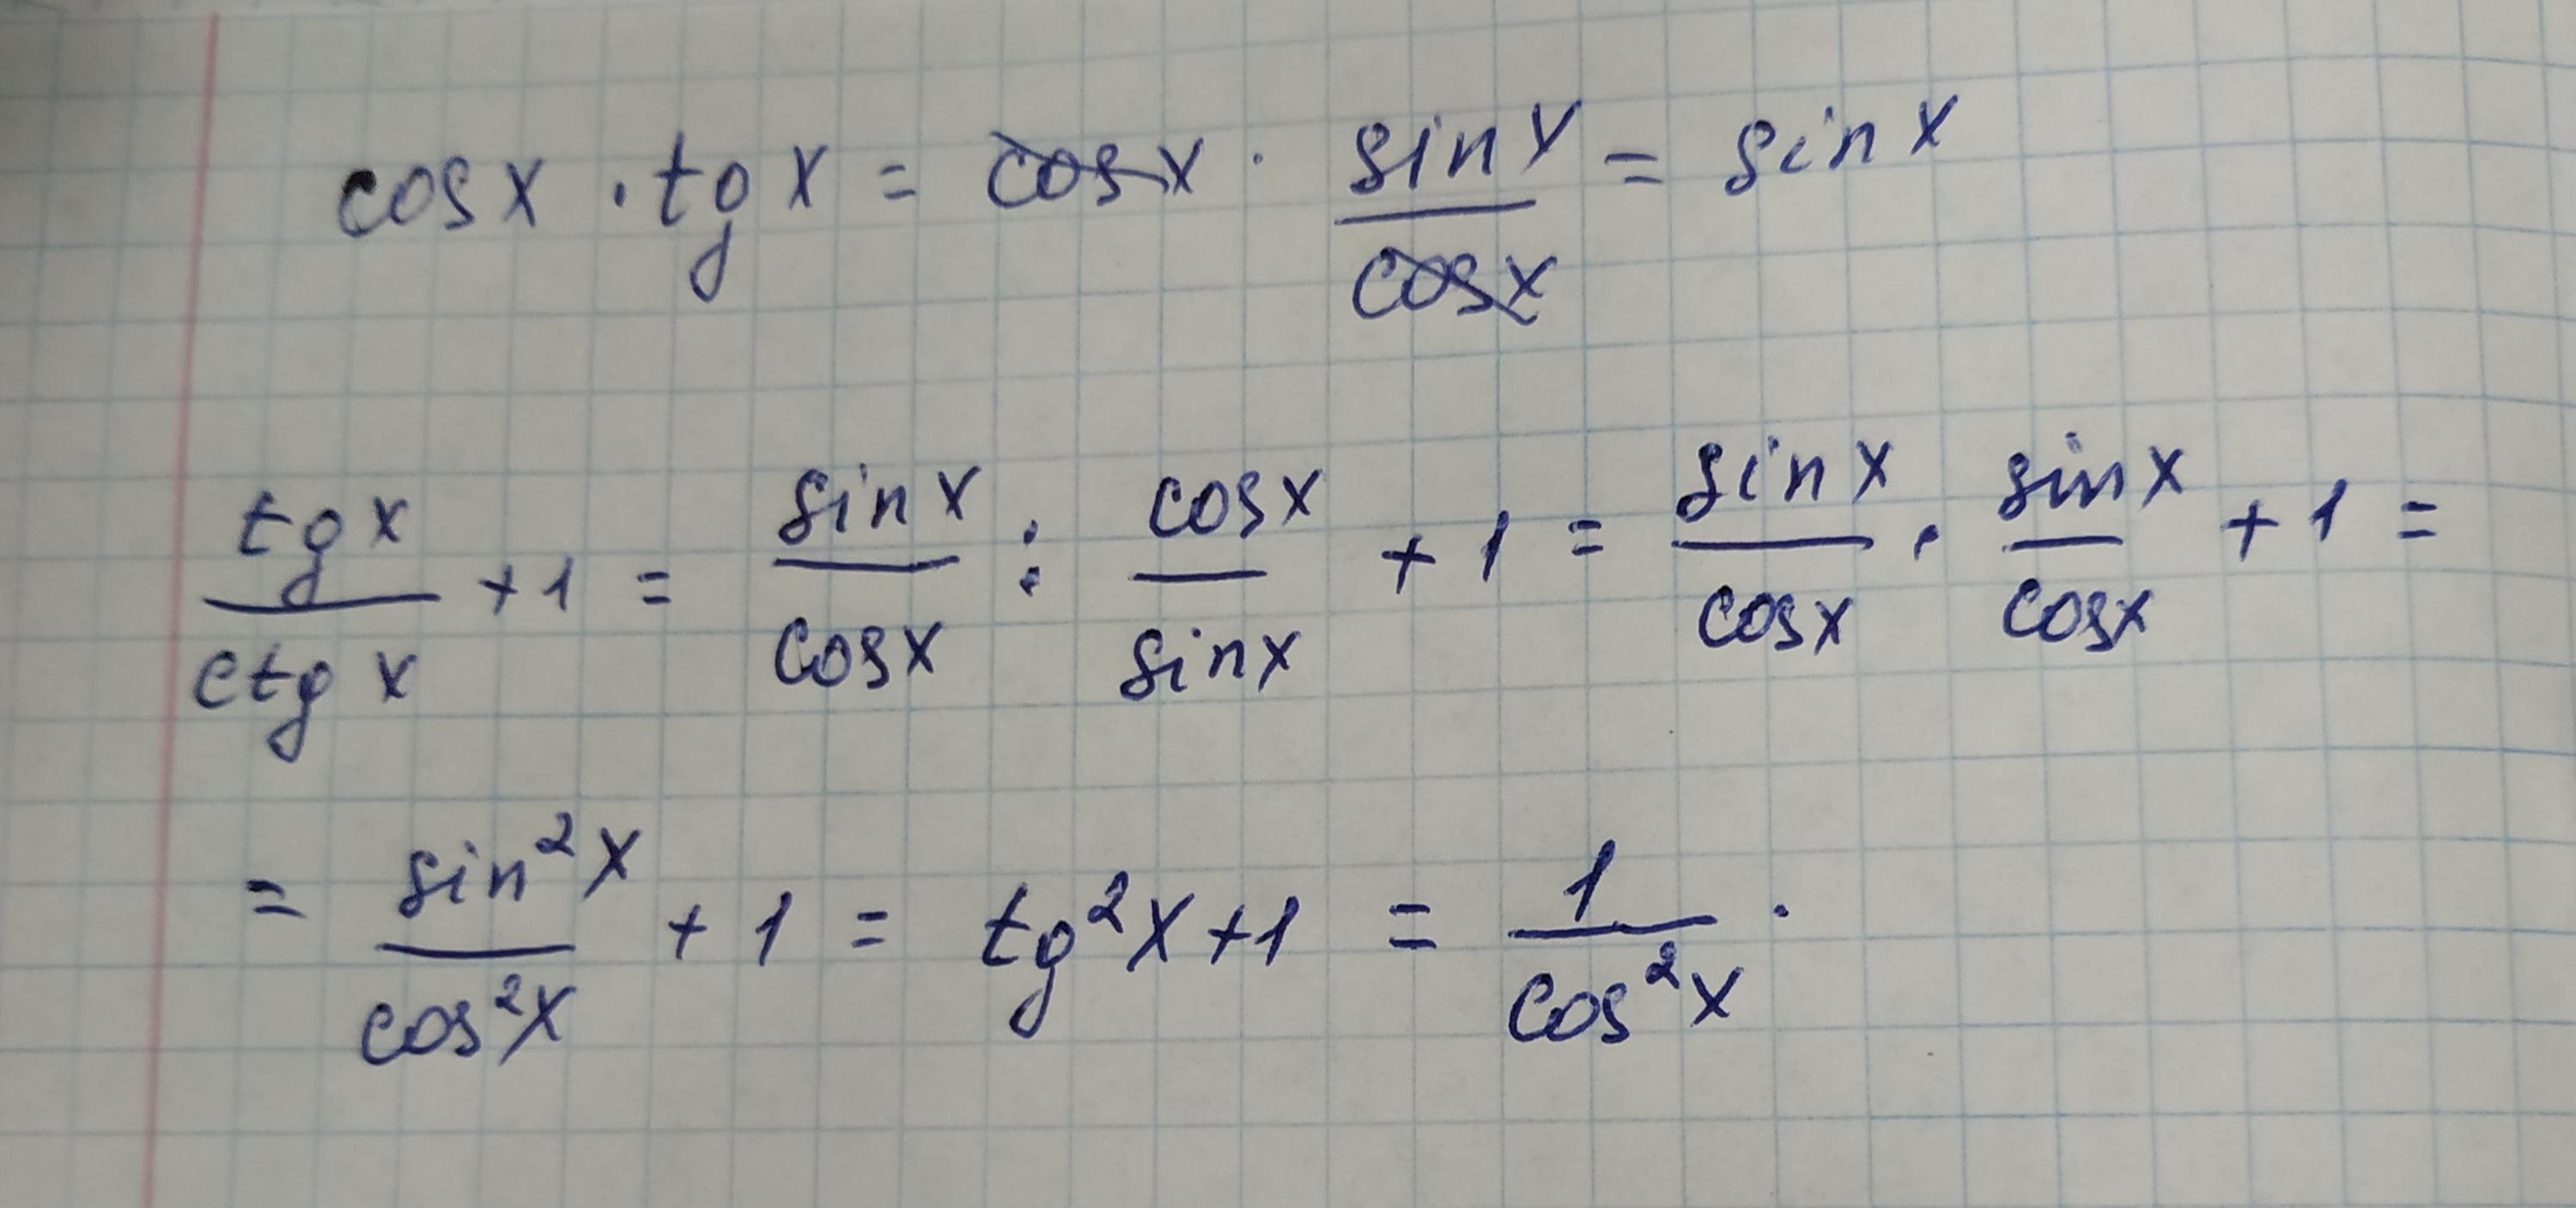 cos x · tg x = cos x · sin x / cos x = sin x
tg x / ctg x + 1 = sin x / cos x : cos x / sin x + 1 = sin x / cos x · sin x / cos x + 1 =
= sin²x / cos²x + 1 = tg²x + 1 = 1 / cos²x .